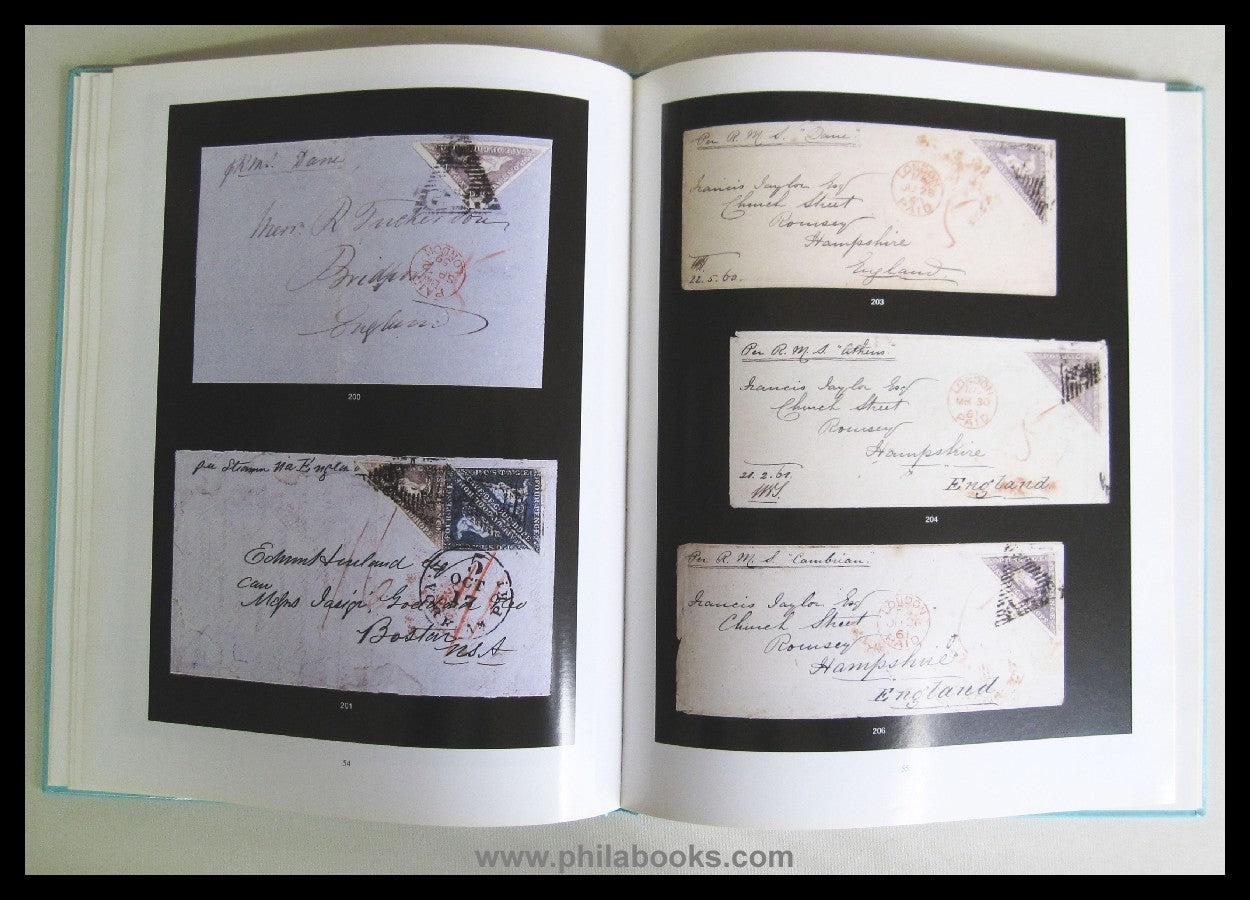 Dane
Messrs R Tuckerdon,
Bridport
England
PAID
LONDON
200
per Steamer via England
FOUR PENCE
POSTAGE
Esq
care
Messrs
Boston
USA
OCT
PAID
201
54
Per R. M. S. "Dane"
LONDON
PAID
Francis Taylor Esq
Church Street
Romsey
Hampshire
England
22.5.60
203
Per R. M. S. "Athens"
LONDON
MR 30
61
PAID
Francis Taylor Esq
Church Street
Romsey
Hampshire
England
21.2.61
204
Per R. M. S. "Cambrian"
LONDON
61
PAID
Francis Taylor Esq
Church Street
Romsey
Hampshire
England
206
55
www.philabooks.com